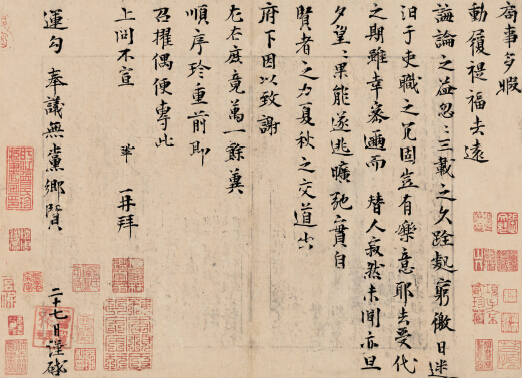 局事多暇
動履禔福去遠
誨論之益忽〻三載之久跧處窮徼日迷
汩于吏職之冗固豈有樂意耶去受代
之期雖幸密邇而 替人寂然未聞亦旦
夕望〻果能遂逃曠弛實自
賢者之力夏秋之交道出
府下因以致謝
左右庶竟萬一餘冀
順序珍重前即
召擢偶便專此
上問不宣 鞏 再拜
運勾奉議無黨鄉賢 二十七日謹啟